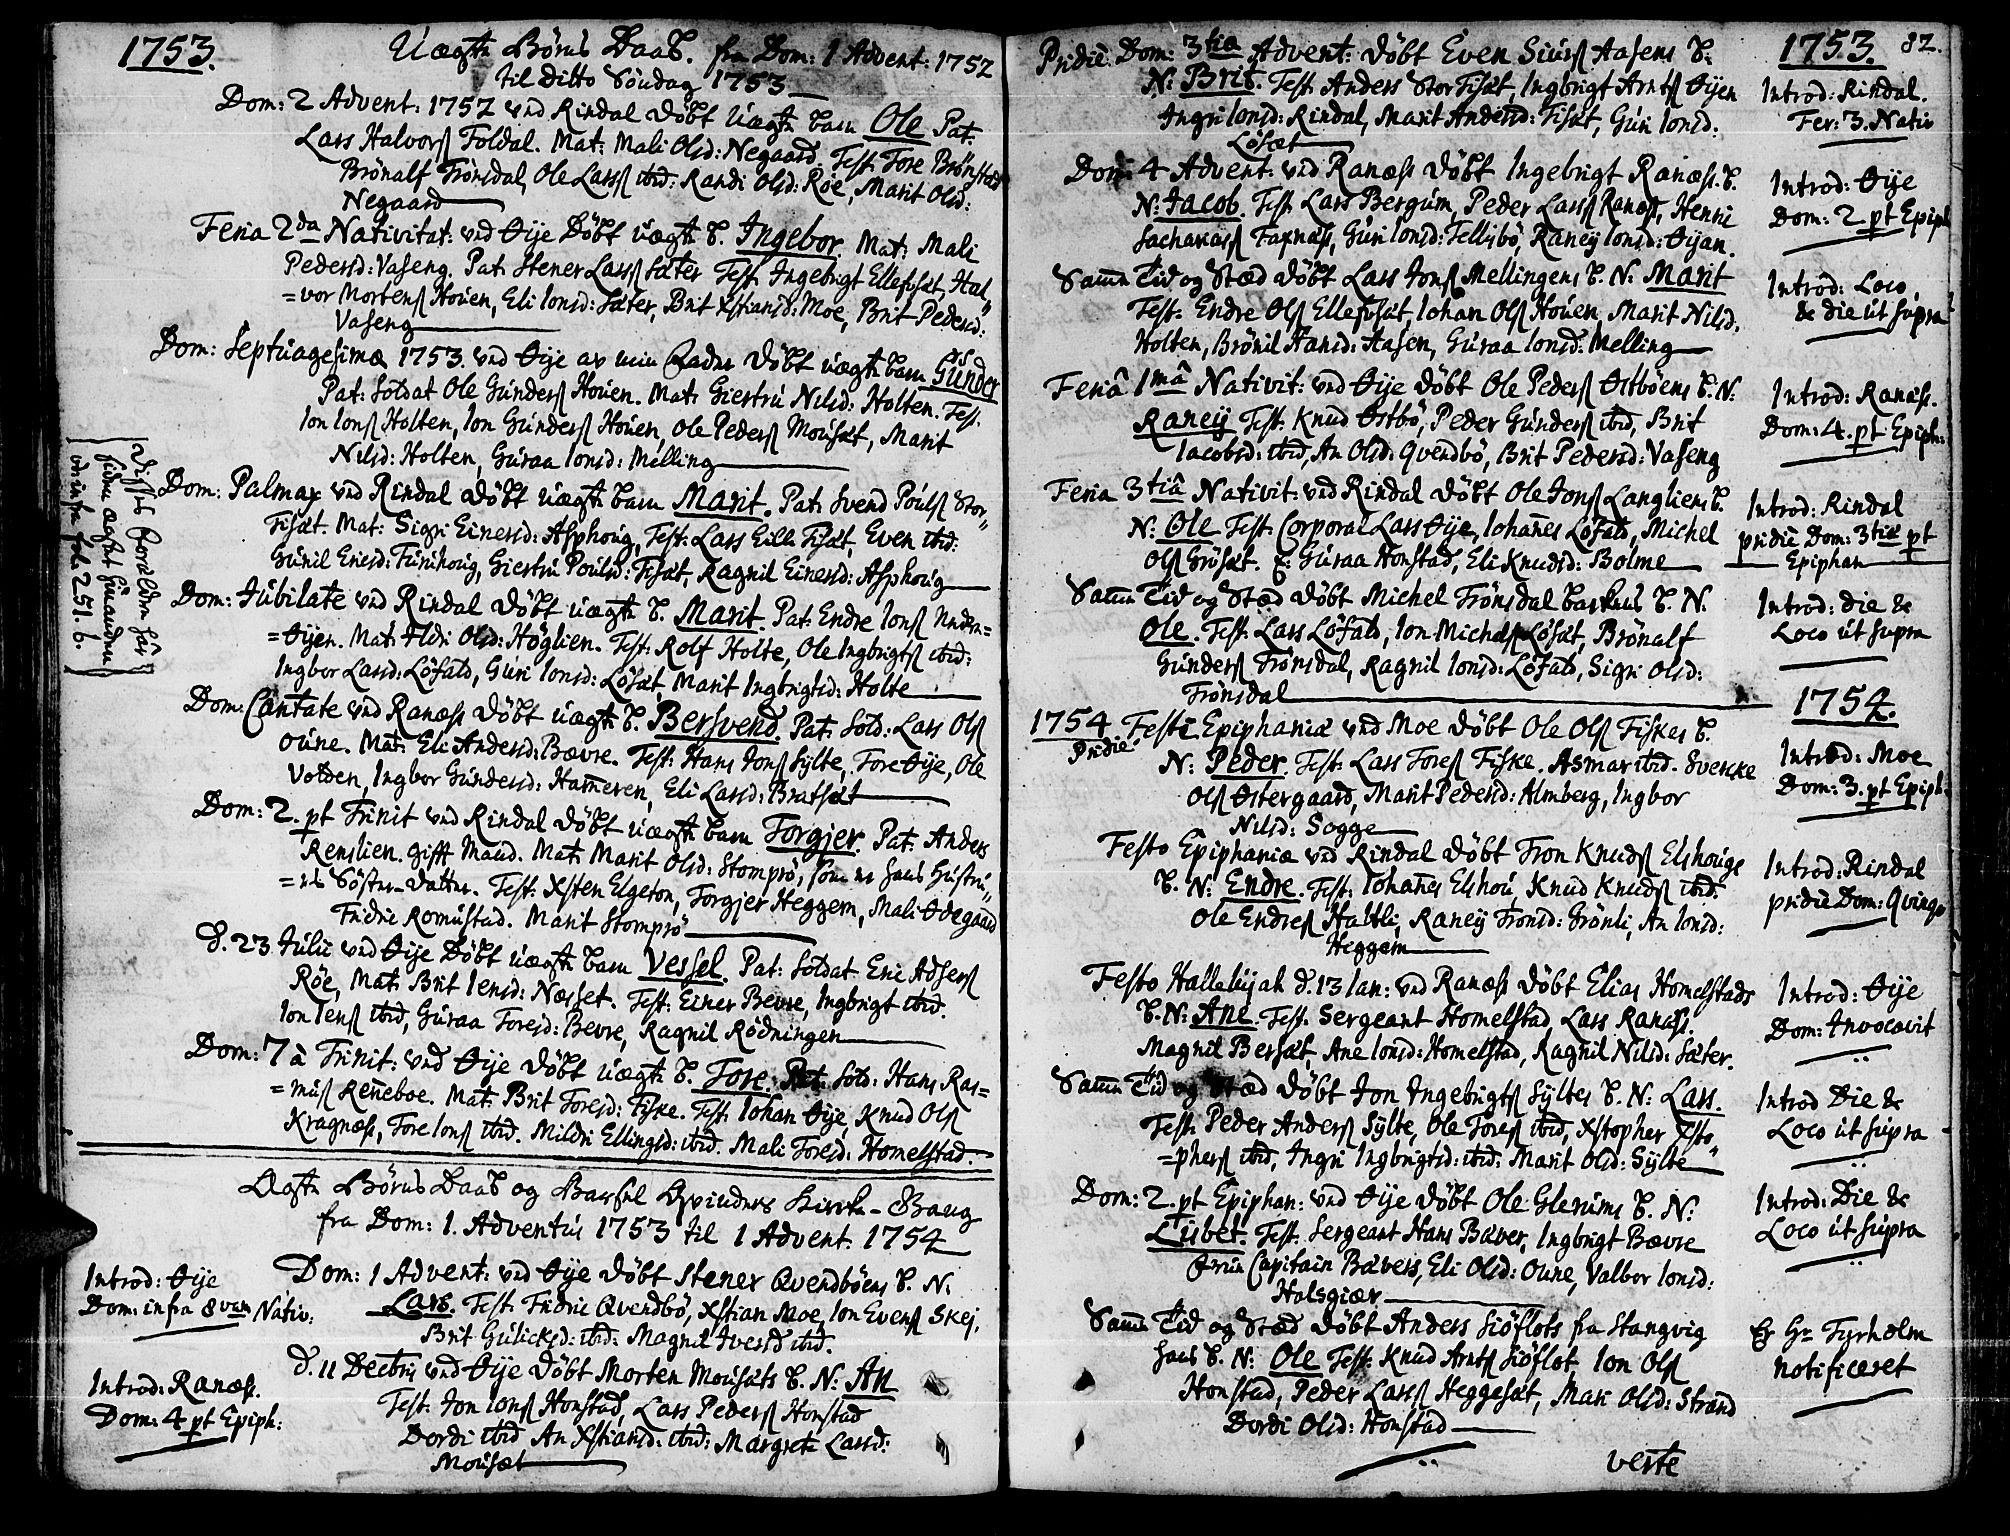 1753.
Uægte Børns Daab. fra Dom: 1 Advent: 1752
til ditto Söndag 1753
Dom: 2 Advent: 1752 ved Rindal döbt Uægte barn Ole Pat.
Lars Halvors Foldal. Mat: Mali Olsd: Negaard. Test. Tore Brönstad
Brönalf Trönsdal, Ole Larss ibid: Randi Olsd: Röe, Marit Olsd:
Negaard
Feria 2da Nativitat: ved Öije Döbt uægte b. Ingebor. Mat: Mali
Pedersd: Vaseng. Pat. Stener Larss Sæter Test. Ingebrigt Ellefsæt, Hal„
=vor Mortens Houen, Eli Ionsd: Sæter, Brit Xstiansd: Moe, Brit Pedersd:
Vaseng
Dom: Septuagesimæ 1753. ved Öije av min Fader döbt uægte barn Gunder
Pat: Soldat Ole Gunders Houen. Mat: Giertru Nilsd: Holten. Test.
Ion Ions Holten, Ion Gunders Houen, Ole Peders Mousæt, Marit
Nilsd: Holten, Guraa Ionsd: Melling
Dom: Palmar ved Rindal döbt uægte barn Marit. Pat: Svend Pouls Stor„
Fisæt. Mat: Sigri Einersd: Asphoug, Test: Lars Lille Fisæt, Even ibid:
Gunil Eriesd: Furuhoug, Giertru Poulsd: Fisæt, Ragnil Einersd: Asphoug
Dom: Jubilate ved Rindal döbt uægte b. Marit. Pat: Endre Ions Neder=
=Öijen. Mat: Ildri Olsd: Höglien. Test: Rolf Holte, Ole Ingbrigts ibid:
Ingbor Larsd: Löfald, Guri Ionsd: Lösæt, Marit Ingbrigtsd: Holte
Dom: Cantate ved Ranæss döbt uægte b. Bersvend. Pat: Sold: Lars Ols
Oune. Mat: Eli Andersd: Bævre. Test: Hans Jons Sylte, Tore Öije, Ole
Volden, Ingbor Gundersd: Hameren, Eli Larsd: Bratsæt
Dom: 2. pt Trinit ved Rindal döbt uægte barn Torgjer. Pat: Anders
Renslien. gifft Mand. Mat: Marit Olsd: Stomprö, som er hans Hustru„
=es Söster-Datter. Test: Xsten Elgeton, Torgjer Heggem, Mali Ödegaard
Fridric Romustad. Marit Stomprö
d. 23 Julii ved Öije Döbt uægte barn Vessel. Pat: Soldat Eric Adsers
Röe, Mat: Brit Iensd: Næsset. Test: Einer Bevre, Ingbrigt ibid.
Ion Iens ibid, Guraa Toresd: Bevre, Ragnil Rödningen
Dom: 7 à Trinit: ved Öije döbt uægte b. Tore. Pat: Sold: Hans Ras=
=mus Reneboe. Mat: Brit Toresd: Fiske. Test: Iohan Öije, Knud Ols
Kragnæss, Tore Ions ibid. Mildri Ellingsd: ibid. Mali Toresd: Homelstad.
Disse forældre her
siden ægtet hinanden
vid infra fol. 251. b.
Ægte Børns Daab og Barsel Qvinders Kirke-Gang
fra Dom: 1. Adventus 1753 til 1 Advent. 1754
Introd: Öije
Dom: infra 8vam Nativ:
Dom: 1 Advent: ved Öije döbt Stener Qvendböens b. N:
Lars. Test. Fridric Qvendbö, Xstian Moe, Ion Evens Skej,
Brit Gulicksd: ibid: Magnil Iversd ibid.
Introd: Ranæss.
Dom: 4 pt Epiph:
d. 11 Decbris ved Öije döbt Morten Mousæts b. N: An
Test: Jon Ions Honstad, Lars Peders Honstad
Dordi ibid An Xstiansd: ibid: Margrete Larsd:
Mousæt
82.
1753.
Pridie Dom: 3tia Advent: döbt Even Siurs Aasens b.
N: Brit. Test. Anders Storfisæt, Ingbrigt Arnts Öijen
Ingri Ionsd: Rindal, Marit Andersd: Fisæt, Guri Ionsd:
Lösæt
Introd: Rindal.
Fer: 3. Nativ
Dom: 4 Advent: ved Ranæss döbt Ingebrigt Ranæss. b.
N: Jacob. Test. Lars Bergum, Peder Larss Ranæss, Henric
Sacharias Faxnæss, Guri Ionsd: Tellisbö, Ranei Ionsd: Öijan.
Introd: Öije
Dom: 2 pt Epiph
Samme Tid og Stæd döbt Lars Jons Mellingens b. N: Marit
Test: Endre Ols Ellefsæt, Iohan Ols Houen, Marit Nilsd.
Holten, Brönil Hansd: Aasen, Guraa Ionsd: Melling
Introd: Loco
& die ut supra
Feriâ 1mâ Nativit: ved Öije döbt Ole Peders Östböens b. N:
Raneij Test: Knud Östbö, Peder Gunders ibid, Brit
Iacobsd: ibid, An Olsd: Qvendbö, Brit Pedersd: Vaseng
Introd: Ranæss.
Dom: 4. pt Epiph:
Feria 3tiâ Nativit: ved Rindal döbt Ole Jons Langliens b.
N: Ole Test: Corporal Lars Öije, Iohanes Löfald, Michel
Ols Grösæt. Guraa Honstad, Eli Knudsd: Bolme
Introd: Rindal
pridie Dom: 3tia pt
Epiphan
Samme Tid og Stæd döbt Michel Trönsdal barnes b. N:
Ole. Test: Lars Löfald, Ion Michels Lösæt, Brönalf
Gunders Trönsdal, Ragnil Ionsd: Löfald, Sigri Olsd:
Trönsdal
Introd: die &
Loco ut supra
1754.
1754
Pridie Festi Epiphaniæ ved Moe döbt Ole Ols Fiskes b.
N: Peder. Test. Lars Tores Fiske. Asmar ibid. Svercke
Ols Östergaard, Marit Pedersd: Almberg, Ingbor
Nilsd: Sogge
Introd: Moe
Dom: 3. pt Epiph.
Festo Epiphaniæ ved Rindal döbt Tron Knuds Elshougs
b. N: Endre. Test: Iohanes Elshou, Knud Knuds ibid:
Ole Endres Haltli, Raney Tronsd: Trönli, An Ionsd:
Heggem
Introd: Rindal
pridie Dom: Qvinqv
Festo Hallelujah d. 13 Ian: ved Ranæss döbt Elias Homelstads
b. N: Ane. Test. Sergeant Homelstad, Lars Ranæss.
Magnil Bersæt, Ane Ionsd: Homelstad, Ragnil Nilsd: Sæter.
Introd: Öije
Dom: Invocavit
Samme Tid og Stæd döbt Jon Ingebrigts Syltes b. N: Lars.
Test. Peder Anders Sylte, Ole Tores ibid, Xstopher Xsto„
=phers ibid, Ingri Ingbrigtsd: ibid: Marit Olsd: Sylte
Introd Die &
Loco ut supra
Dom: 2. pt Epiphan: ved Öije döbt Ole Glerums b. N:
Lisbet. Test. Sergeant Hans Bæver, Ingbrigt Bævre
Fruë Capitain Bævers, Eli Olsd: Oune, Valbor Ionsd:
Halsgiær
Introd: Die &
Loco ut supra
Samme Tid og Stæd döbt Anders Siöflots fra Stangvig
hans b. N: Ole Test: Knud Arnts Siöflot, Ion Ols
Honstad, Peder Larss Heggesæt, Mari Olsd: Strand
Dordi Olsd: Honstad
Er Hr Tyrholm
notificeret
veste